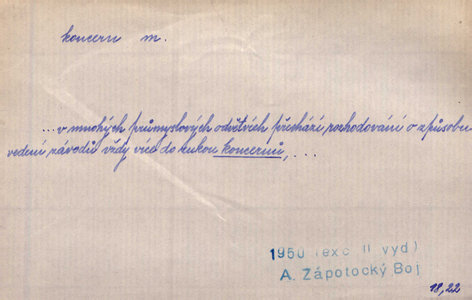 koncern m.
... v mnohých průmyslových odvětvích přechází rozhodování o způsobu
vedení závodů vždy více do rukou koncernů, ...
1950 (exc. II vyd)
A. Zápotocký Boj
18,22